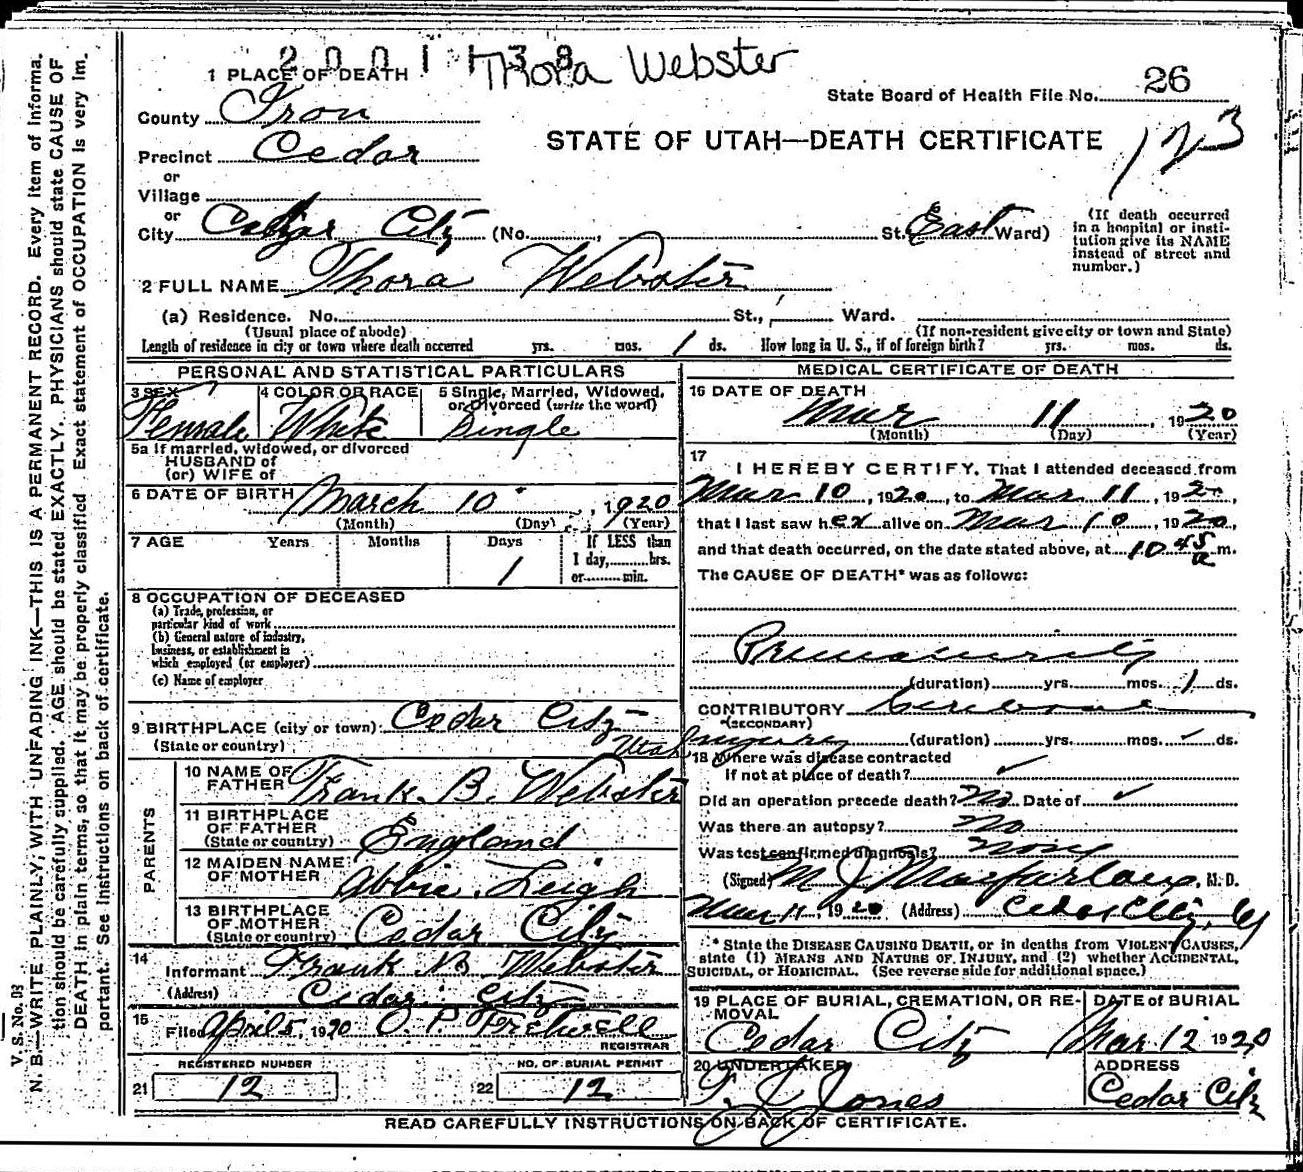 2001138 Thora Webster
1 PLACE OF DEATH
State Board of Health File No. 26
County Iron
STATE OF UTAH—DEATH CERTIFICATE 123
Precinct Cedar
or
Village
or
City Cedar City (No. , St. East Ward)
(If death occurred
in a hospital or insti-
tution give its NAME
instead of street and
number.)
2 FULL NAME Thora Webster
(a) Residence. No. St., Ward.
(Usual place of abode) (If non-resident give city or town and State)
Length of residence in city or town where death occurred yrs. mos. 1 ds. How long in U. S., if of foreign birth? yrs. mos. ds.
PERSONAL AND STATISTICAL PARTICULARS
3 SEX 4 COLOR OR RACE 5 Single, Married, Widowed,
or Divorced (write the word)
Female White Single
5a If married, widowed, or divorced
HUSBAND of
(or) WIFE of
6 DATE OF BIRTH March 10, 1920
(Month) (Day) (Year)
7 AGE Years Months Days If LESS than
1 day, hrs.
1 or min.
8 OCCUPATION OF DECEASED
(a) Trade, profession, or
particular kind of work
(b) General nature of industry,
business, or establishment in
which employed (or employer)
(c) Name of employer
9 BIRTHPLACE (city or town) Cedar City
(State or country) Utah
PARENTS
10 NAME OF
FATHER Frank B. Webster
11 BIRTHPLACE
OF FATHER
(State or country) England
12 MAIDEN NAME
OF MOTHER Abbie Leigh
13 BIRTHPLACE
OF MOTHER
(State or country) Cedar City
14
Informant Frank B Webster
(Address) Cedar City
15
Filed April 5, 1920 O. P. Fretwell
REGISTRAR
REGISTERED NUMBER NO. OF BURIAL PERMIT
21 12 22 12
MEDICAL CERTIFICATE OF DEATH
16 DATE OF DEATH
Mar 11, 1920
(Month) (Day) (Year)
17
I HEREBY CERTIFY, That I attended deceased from
Mar 10, 1920, to Mar 11, 1920,
that I last saw her alive on Mar 10, 1920,
and that death occurred, on the date stated above, at 10 45 a m.
The CAUSE OF DEATH* was as follows:
Prematurity
(duration) yrs. mos. 1 ds.
CONTRIBUTORY Cerebral
(SECONDARY)
injury (duration) yrs. mos. ds.
18 Where was disease contracted
if not at place of death?
Did an operation precede death? No Date of
Was there an autopsy? No
Was test confirmed diagnosis? None
(Signed) M J Macfarlane, M. D.
Mar 11, 1920 (Address) Cedar City, U
* State the DISEASE CAUSING DEATH, or in deaths from VIOLENT CAUSES,
state (1) MEANS AND NATURE OF INJURY, and (2) whether ACCIDENTAL,
SUICIDAL, or HOMICIDAL. (See reverse side for additional space.)
19 PLACE OF BURIAL, CREMATION, OR RE-
MOVAL
Cedar City
DATE of BURIAL
Mar 12 1920
20 UNDERTAKER
T J Jones
ADDRESS
Cedar City
READ CAREFULLY INSTRUCTIONS ON BACK OF CERTIFICATE.
V. S. No. D3
N. B.—WRITE PLAINLY, WITH UNFADING INK—THIS IS A PERMANENT RECORD. Every item of informa-
tion should be carefully supplied. AGE should be stated EXACTLY. PHYSICIANS should state CAUSE OF
DEATH in plain terms, so that it may be properly classified. Exact statement of OCCUPATION is very im-
portant. See instructions on back of certificate.